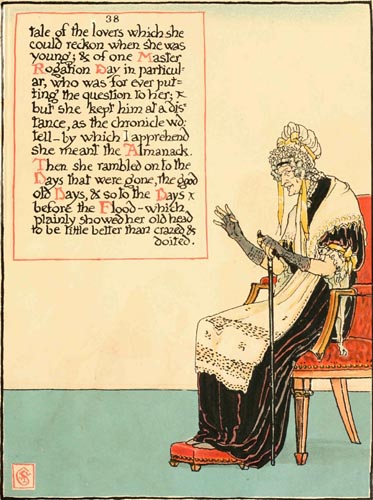 38
tale of the lovers which she
could reckon when she was
young; & of one Master
Rogation Day in particul-
ar, who was for ever put=
ting the question to her; &
but she kept him at a dis
tance, as the chronicle wd:
tell - by which I apprehend
she meant the Almanack.
Then she rambled on to the
Days that were gone, the good
old Days, & so to the Days &
before the Flood - which
plainly showed her old head
to be little better than crazed &
doited.